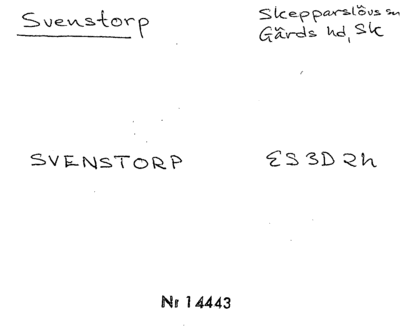 Svenstorp
Skepparslövs sn
Gärds hd, Sk
SVENSTORP
ES 3D 2h
Nr 14443